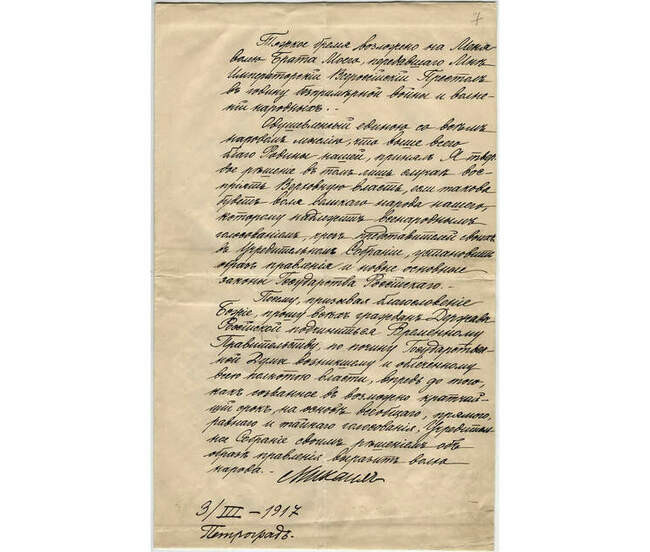 7
Тяжкое бремя возложено на Меня
волею Брата Моего, передавшего Мнѣ
Императорскій Всероссійскій Престолъ
въ годину безпримѣрной войны и волне-
ній народныхъ.
Одушевленный единою со всѣмъ
народомъ мыслію, что выше всего
благо Родины нашей, принялъ Я твер-
дое рѣшеніе въ томъ лишь случаѣ вос-
пріять Верховную власть, если такова
будетъ воля великаго народа нашего,
которому надлежитъ всенароднымъ
голосованіемъ, чрезъ представителей своихъ
въ Учредительномъ Собраніи, установить
образъ правленія и новые основные
законы Государства Россійскаго.
Посему, призывая благословеніе
Божіе, прошу всѣхъ гражданъ Державы
Россійской подчиниться Временному
Правительству, по почину Государствен-
ной Думы возникшему и облеченному
всею полнотою власти, впредь до того,
какъ созванное въ возможно кратчай-
шій срокъ, на основѣ всеобщаго, прямого,
равнаго и тайнаго голосованія, Учредитель-
ное Собраніе своимъ рѣшеніемъ объ
образѣ правленія выразитъ волю
народа.
Михаилъ
3/III – 1917
Петроградъ.